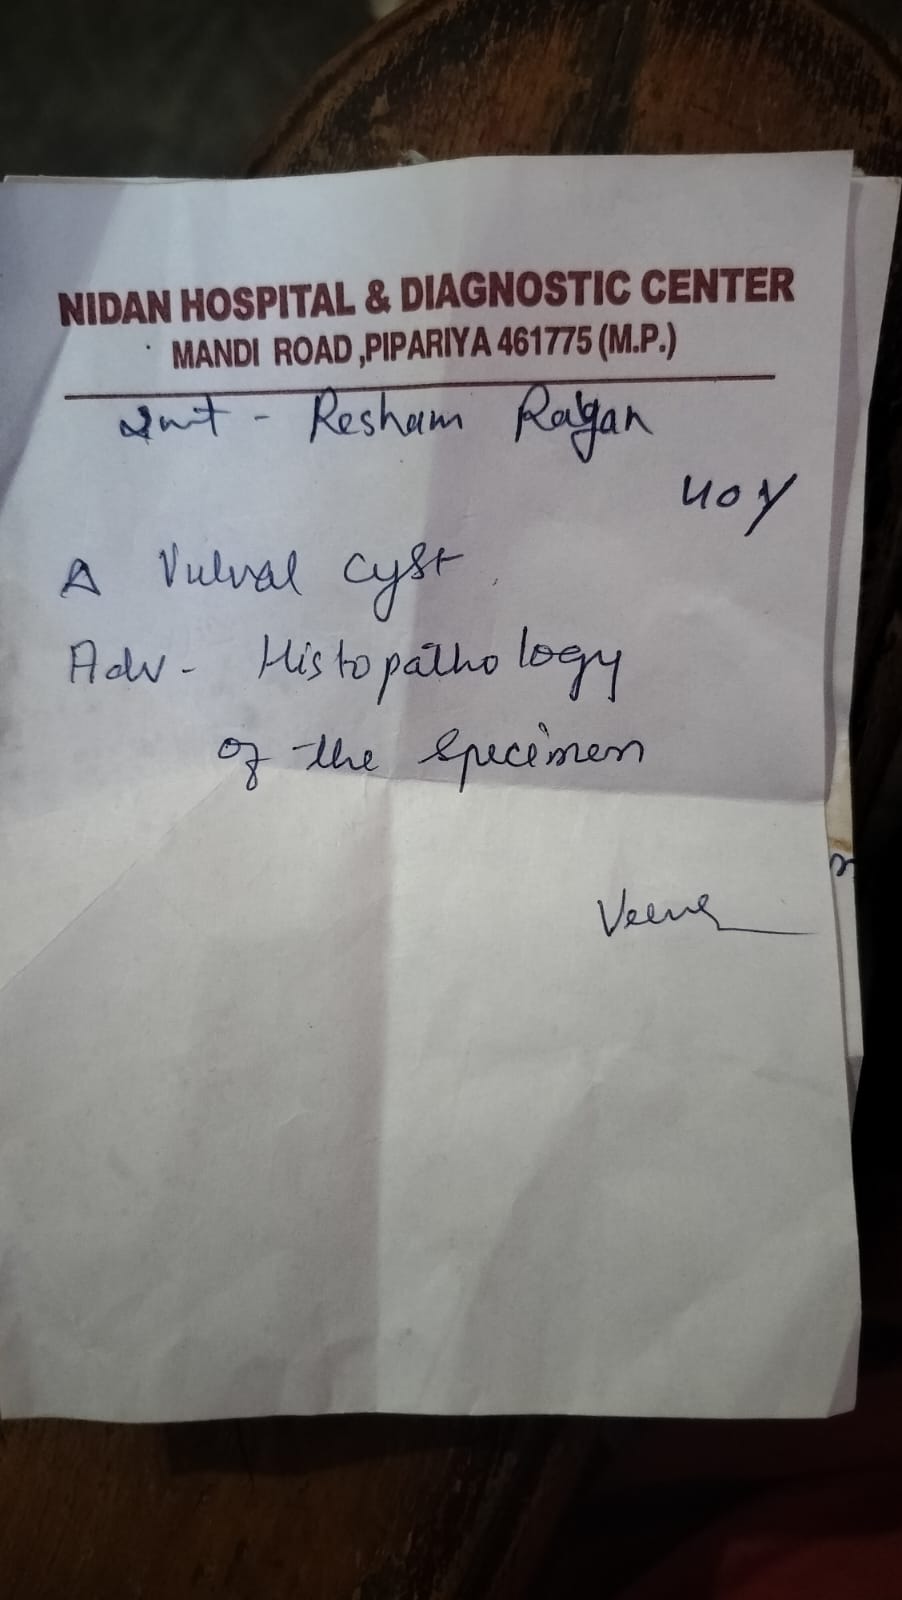 NIDAN HOSPITAL & DIAGNOSTIC CENTER
MANDI ROAD, PIPARIYA 461775 (M.P.)
Smt - Resham
40 y
Δ Vulval Cyst
Adv - Histopathology
of the Specimen
Veena